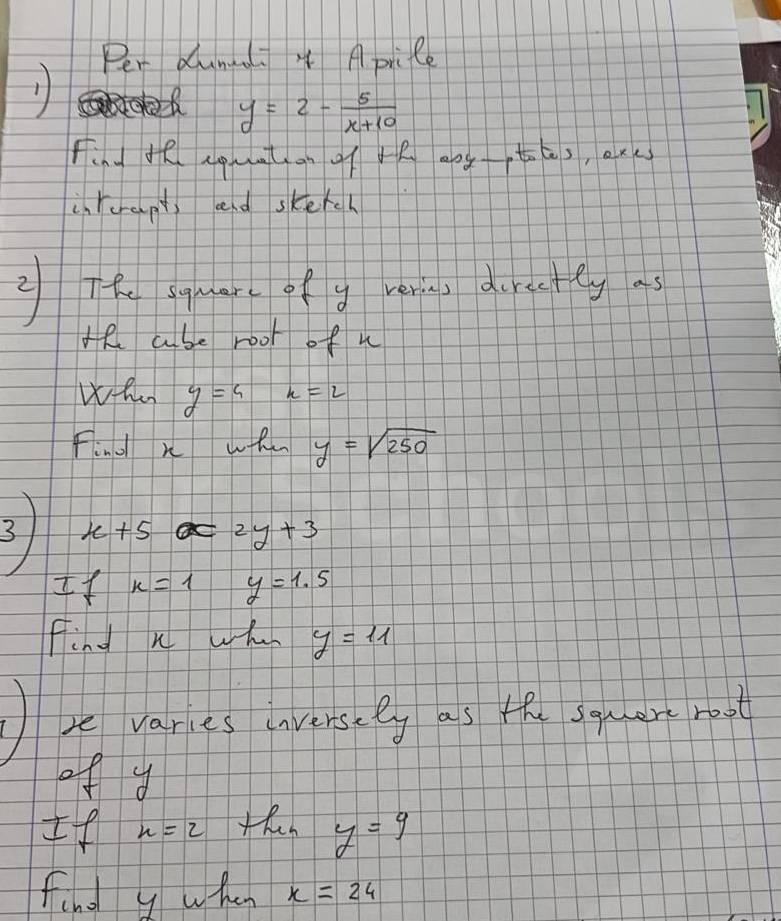 Per Lunedi 7 Aprile
1) y = 2 - 5/(x+10)
Find the equation of the asymptotes, axes
intercepts and sketch
2) The square of y varies directly as
the cube root of x
When y=4 x=2
Find x when y = √250
3) x+5 ∝ 2y+3
If x=1 y=1.5
Find x when y=11
) x varies inversely as the square root
of y
If x=2 then y=9
Find y when x=24